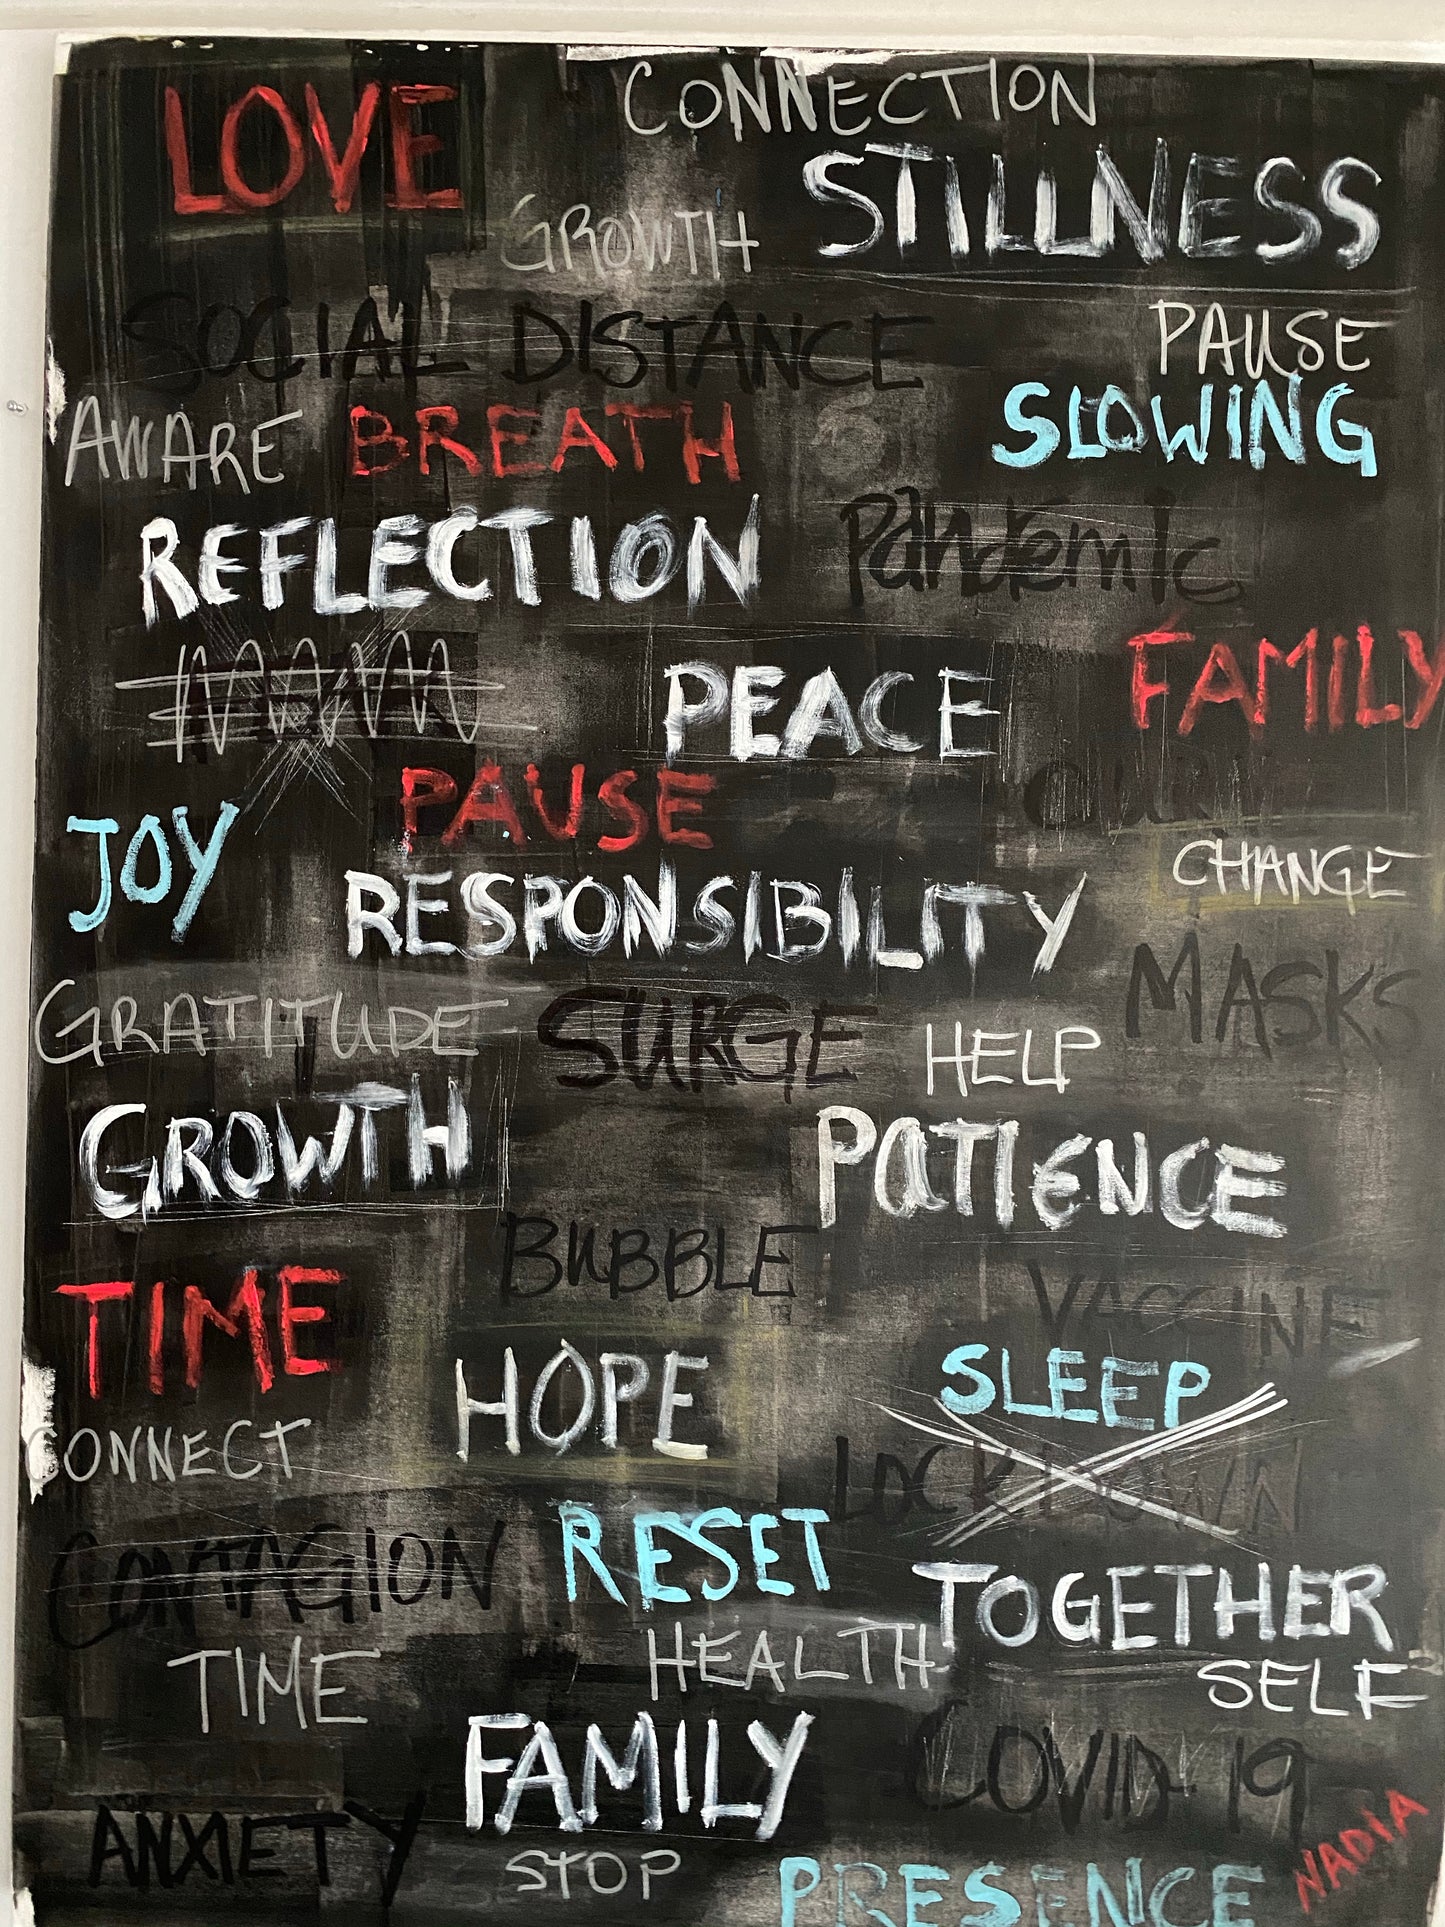 LOVE
CONNECTION
STILLNESS
GROWTH
SOCIAL DISTANCE
PAUSE
AWARE
BREATH
SLOWING
REFLECTION
Pandemic
FAMILY
PEACE
PAUSE
JOY
CHANGE
RESPONSIBILITY
MASKS
GRATITUDE
SURGE
HELP
GROWTH
PATIENCE
BUBBLE
VACCINE
TIME
HOPE
SLEEP
CONNECT
LOCKDOWN
CONTAGION
RESET
TOGETHER
TIME
HEALTH
SELF
FAMILY
COVID-19
ANXIETY
STOP
PRESENCE
NADIA